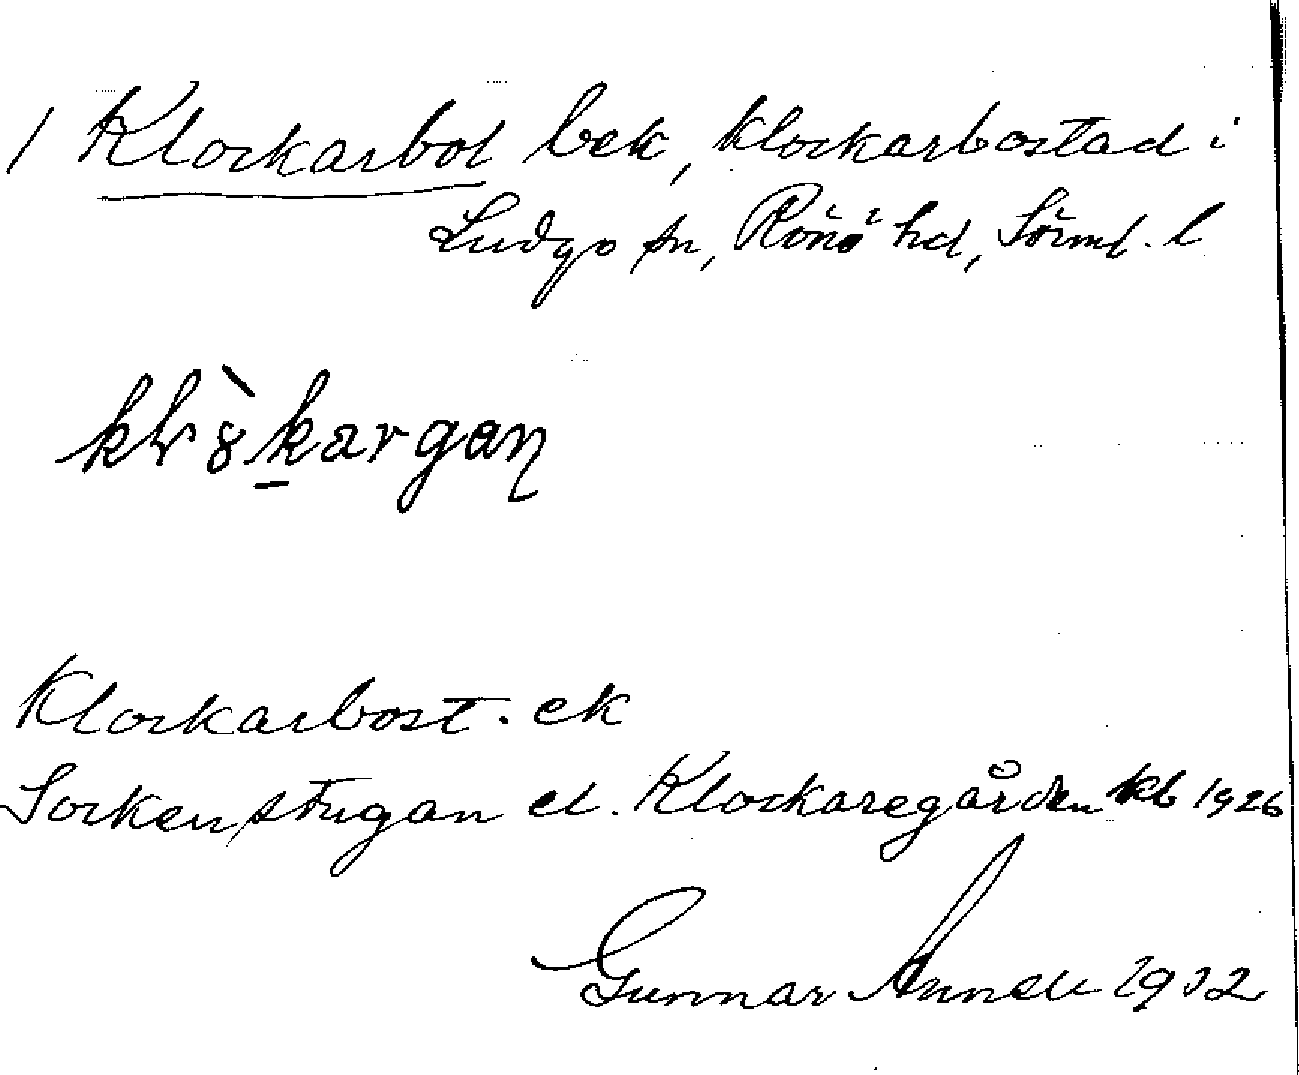 1 Klockarbol bek, klockarbostad i
Ludgo sn, Rönö hd, Sörml. l
Klockarbost. ek
Sockenstugan el. Klockaregården kb 1926
Gunnar 1932